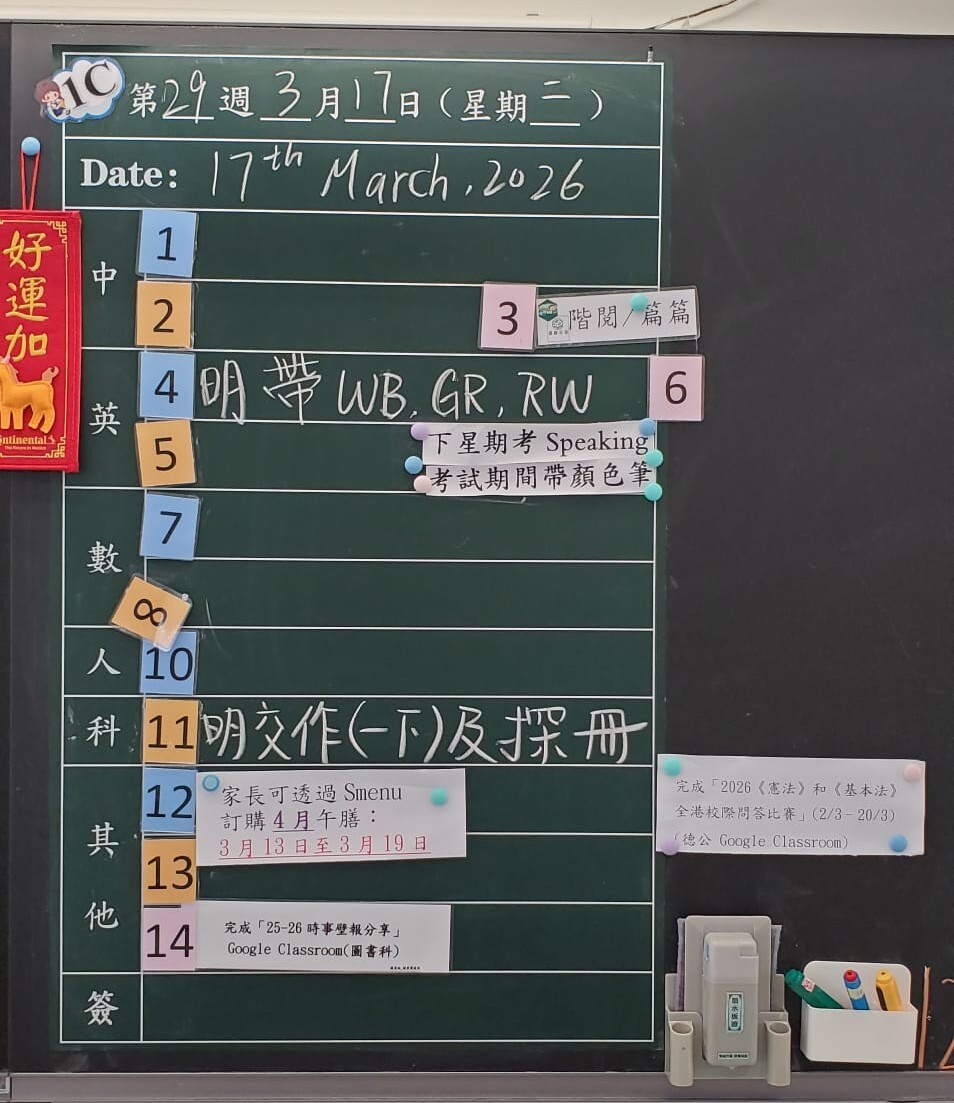 1C 第29週 3月17日（星期二）
Date: 17th March, 2026
好運加
中
1
2
3 階閱/篇篇
英
4 明帶 WB, GR, RW
6
5 下星期考 Speaking
考試期間帶顏色筆
數
7
8
人
10
科
11 明交作(一下)及探冊
其他
12 家長可透過 Smenu
訂購 4月午膳：
3月13日至3月19日
13
14 完成「25-26 時事壁報分享」
Google Classroom(圖書科)
簽
完成「2026《憲法》和《基本法》
全港校際問答比賽」(2/3–20/3)
(德公 Google Classroom)